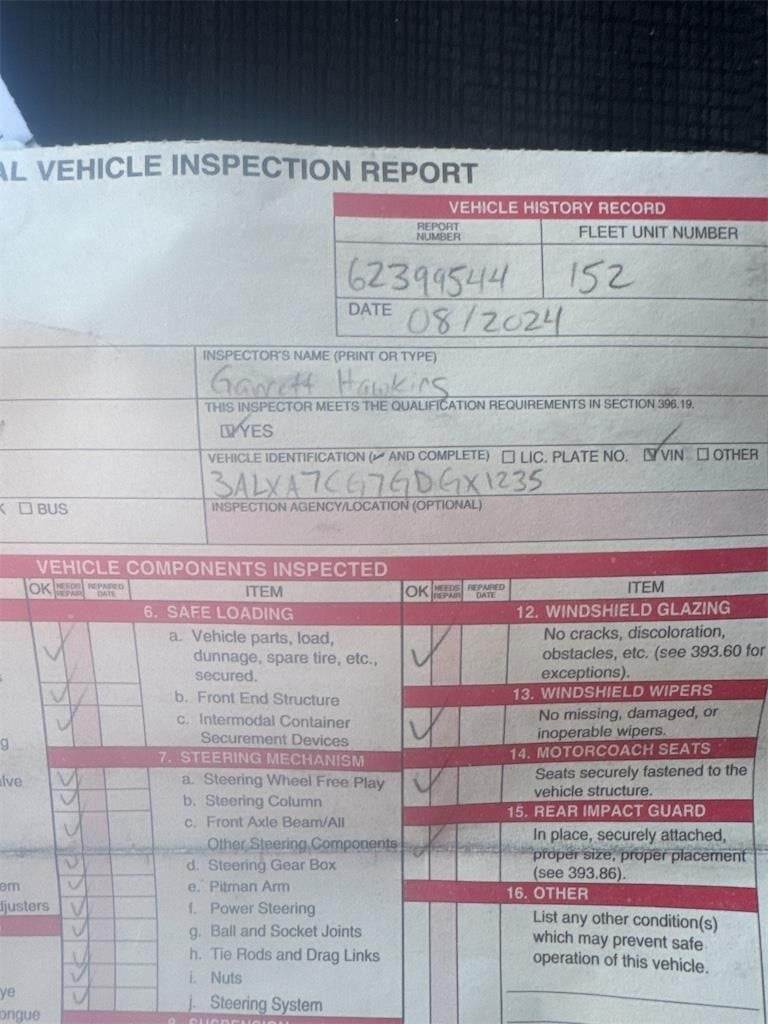 AL VEHICLE INSPECTION REPORT
VEHICLE HISTORY RECORD
REPORT NUMBER
FLEET UNIT NUMBER
62399544
152
DATE 08/2024
INSPECTOR'S NAME (PRINT OR TYPE)
Garrett Hawkins
THIS INSPECTOR MEETS THE QUALIFICATION REQUIREMENTS IN SECTION 396.19.
YES
VEHICLE IDENTIFICATION (✓ AND COMPLETE) ☐ LIC. PLATE NO. ☑ VIN ☐ OTHER
3ALXA7CG7GDGX1235
K ☐ BUS
INSPECTION AGENCY/LOCATION (OPTIONAL)
VEHICLE COMPONENTS INSPECTED
OK NEEDS REPAIR REPAIRED DATE ITEM
6. SAFE LOADING
a. Vehicle parts, load,
dunnage, spare tire, etc.,
secured.
b. Front End Structure
c. Intermodal Container
Securement Devices
7. STEERING MECHANISM
a. Steering Wheel Free Play
b. Steering Column
c. Front Axle Beam/All
Other Steering Components
d. Steering Gear Box
e. Pitman Arm
f. Power Steering
g. Ball and Socket Joints
h. Tie Rods and Drag Links
i. Nuts
j. Steering System
OK NEEDS REPAIR REPAIRED DATE ITEM
12. WINDSHIELD GLAZING
No cracks, discoloration,
obstacles, etc. (see 393.60 for
exceptions).
13. WINDSHIELD WIPERS
No missing, damaged, or
inoperable wipers.
14. MOTORCOACH SEATS
Seats securely fastened to the
vehicle structure.
15. REAR IMPACT GUARD
In place, securely attached,
proper size, proper placement
(see 393.86).
16. OTHER
List any other condition(s)
which may prevent safe
operation of this vehicle.